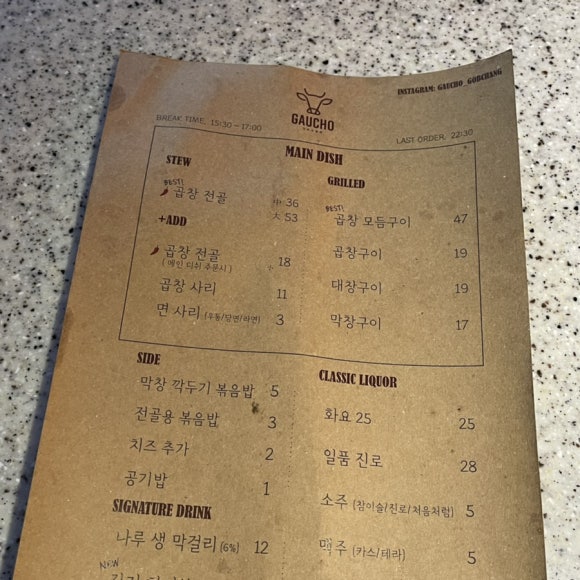 INSTAGRAM: GAUCHO_GOBCHANG
GAUCHO
BREAK TIME. 15:30 ~ 17:00
LAST ORDER. 22:30
MAIN DISH
STEW
BEST!
곱창 전골 中 36
大 53
+ADD
곱창 전골 小 18
(메인 디쉬 주문시)
곱창 사리 11
면 사리 (우동/당면/라면) 3
GRILLED
BEST!
곱창 모듬구이 47
곱창구이 19
대창구이 19
막창구이 17
SIDE
막창 깍두기 볶음밥 5
전골용 볶음밥 3
치즈 추가 2
공기밥 1
SIGNATURE DRINK
나루 생 막걸리 (6%) 12
NEW
CLASSIC LIQUOR
화요 25 25
일품 진로 28
소주 (참이슬/진로/처음처럼) 5
맥주 (카스/테라) 5